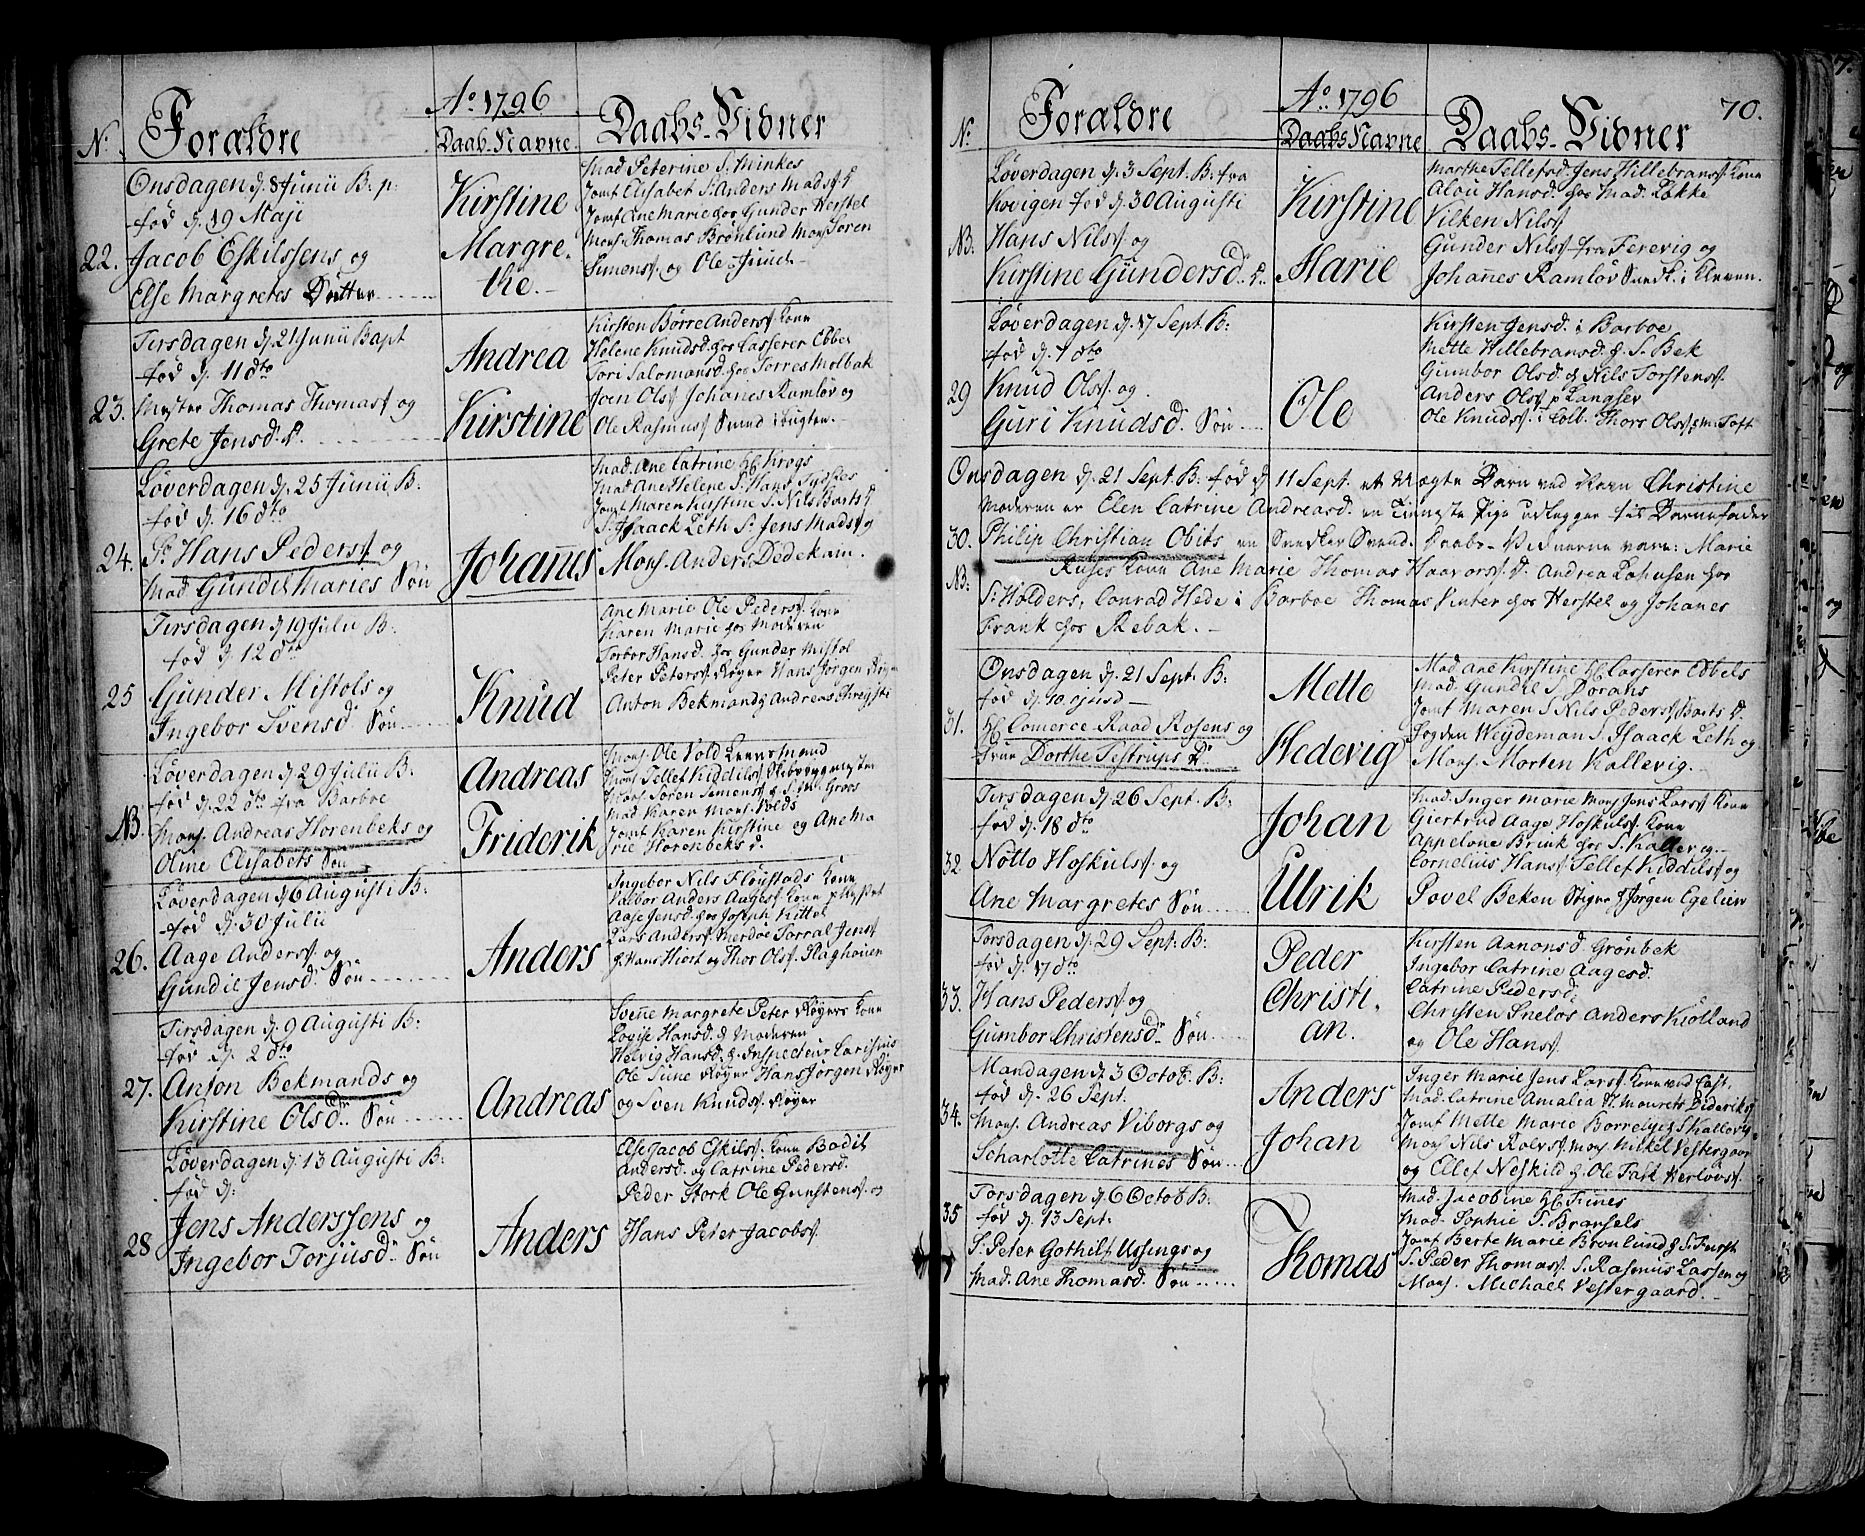 Ao 1796
No. Forældre Daab-Navne Daabs-Vidner
Onsdagen d. 8 Junii B: p:
fød d. 19 Maji
22. Jacob Eskilssens og
Else Margretes Dotter
Kirstine
Margre-
the.
Mad Peterine S. Minkes
Jomf Elisabet S. Anders Mads D
Jomf Ane Marie hos Gunder Herstel
Mons. Thomas Brønlund Mons Søren
Simens og Ole Juul
Tirsdagen d. 21 Junii Bapt
fød d. 11 dto
23. Mester Thomas Thomass og
Grete Jensd. D.
Andrea
Kirstine
Kirsten Børre Anders Kone
Helene Knudsd. hos Casserer Ebbel
Tori Salomonsd. hos Torres Molbak
Joen Ols Johanes Ramløv og
Ole Rasmuss Svend i Bugten
Løverdagen d. 25 Junii B:
fød d. 16 dto
24. Sr. Hans Peders og
Mad Gundil Maries Søn
Johannes
Mad. Ane Catrine Krogs
Mad Ane Helene S. Hans Tydskes
Jomf Maren Kirstine S. Nils Barts D
S. Isaack Leth Sr. Jens Mads og
Mons. Anders Dedekam.
Tirsdagen d 19 Julii B:
fød d. 12 dto
25 Gunder Mistols og
Ingebor Svensd Søn
Knud
Ane Marie Ole Peders Kone
Karen Marie hos Moderen
Torbor Hansd. hos Gunder Mistol
Peter Peters Røyer Hans Jørgen Røyer
Anton Bekmand & Andreas Greigsti
Løverdagen d 29 Julii B:
fød d. 22 dto fra Barboe
NB. Mons. Andreas Horenbeks og
Oline Elisabets Søn
Andreas
Friderik
Mons. Ole Vold Leensmand
Mons Tellef Kiddils Skibbyggmester
Mons Søren Simens & S. M. Groos
Mad Karen Mons. Volds
Jomf Karen Kirstine og Ane Ma
rie Horenbeks D.
Løverdagen d 6 Augusti B:
fød d. 30 Julii
26. Aage Anders og
Gundil Jensd. Søn
Anders
Ingebor Nils Fløustads Kone
Valbor Anders Aages Kone
Aase Jensd. hos Joseph Kittel
Lars Anders Merdøe Torral Jens
& Hans Hiort og Thor Ols. Flaghouen
Tirsdagen d. 9 Augusti B:
fød d. 2 dto
27. Anton Bekmands og
Kirstine Olsdr. Søn
Andreas
Svenne Margrete Peter Røyers Kone
Lovise Hansd. & Moderen
Helvig Hansd. & Inspecteur Carisius
Ole Sune Røyer Hans Jørgen Røyer
og Sven Knuds. Røyer
Løverdagen d. 13 Augusti B:
fød d:
28 Jens Anderssens og
Ingebor Torjusdr Søn
Anders
Else Jacob Eskils. Kone Bodil
Andersd. og Catrine Pedersd.
Peder Stork Ole Gunstens og
Hans Peter Jacobs
70.
Ao. 1796
No. Forældre Daabs Navne Daabs-Vidner
Løverdagen d. 3 Sept. B: fra
Kovigen fød d. 30 Augusti
NB. Hans Nils og
Kirstine Gundersd. D.
Kirstine
Marie
Marthe Tellefsd. Jens Hillebrans Kone
Alou Hansd. hos Mad. Løkke
Vilken Nils
Gunder Nils fra Ferevig og
Johanes Ramløv Svend i Kleven.
Løverdagen d. 17 Sept. B:
fød d. 7 dto
29 Knud Ols og
Guri Knudsd. Søn
Ole
Kirsten Jensd. i Barboe
Mette Hillebransd. & S. Bek
Gumbor Olsd & Nils Torstens
Anders Ols p Langsev
Ole Knuds. i Colb. Thors Ols Toft
Onsdagen d. 21 Sept. B: fød d 11 Sept. et Uægte Barn ved Navn Christine
Moderen er Elen Catrine Andreasd. en Tieneste Pige udlegger til Barnefader
30. Philip Christian Obits en Snedker Svend. Daabs-Vidnerne vare: Marie
NB: Ruses Kone Ane Marie Thomas Haavors D. Andrea Lohnsen hos
S. Holders, Conrad Hede i Barboe Thomas Vinter hos Herstel og Johanes
Frank hos Rebak.
Onsdagen d. 21 Sept. B:
fød d. 10 ejusd
31. Comerce Raad Rosens og
Frue Dorthe Testrups D
Mette
Hedevig
Mad. Ane Kirstine Casserer Ebbels
Mad. Gundil S. Dorahs
Jomf Maren S Nils Peders Barts D.
Fogden Weydeman S. Isaack Leth og
Mons. Morten Kallevig.
Tirsdagen d. 26 Sept. B:
fød d. 18 dto
32. Notto Hoskuls og
Ane Margretes Søn
Johan
Ulrik
Mad. Inger Marie Mons Jens Lars Kone
Giertrud Aage Hoskuls Kone
Appelone Brink hos S. Kallevig
Cornelius Hans Tellef Kiddils og
Povel Beken Styrer & Jørgen Egelien
Torsdagen d. 29 Sept. B:
fød d. 17 dto
33. Hans Peders og
Gumbor Christensdr. Søn
Peder
Christi-
an.
Kirsten Aanonsd. Grønbek
Ingebor Catrine Aagesd.
Catrine Pedersd.
Christen Snelos Anders Kiølland
og Ole Hans
Mandagen d. 3 Octob. B:
fød d. 26 Sept.
34. Mons. Andreas Viborgs og
Scharlotte Catrines Søn
Anders
Johan
Inger Marie Jens Lars Kone ved East.
Mad. Catrine Amalia Mourets Dideriks
Jomf Mette Marie Borrelye S Kallevig
Mons Nils Rolvs Mons Mikkel Vestergaar
og Ellef Neskild & Ole Falk Herløvs
Torsdagen d. 6 Octob. B:
fød d. 13 Sept.
35 S. Peter Gothilf Ussings og
Mad. Ane Thomasd. Søn
Thomas
Mad. Jacobine Fines
Mad. Sophie S. Bransels
Jomf Berte Marie Brønlund & S. Furst
S. Peder Thomas. S. Rasmus Lassen og
Mons. Michael Vestergaard.